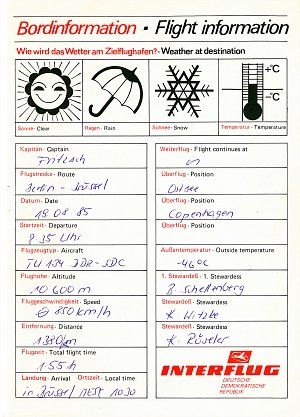 Bordinformation • Flight information
Wie wird das Wetter am Zielflughafen? • Weather at destination
+°C
-°C
Sonne · Clear
Regen · Rain
Schnee · Snow
Temperatur · Temperature
Kapitän · Captain
Fritzsch
Flugstrecke · Route
Berlin - Brüssel
Datum · Date
19 08 85
Startzeit · Departure
8.35 Uhr
Flugzeugtyp · Aircraft
TU 134 DDR-SDC
Flughöhe · Altitude
10 600 m
Fluggeschwindigkeit · Speed
850 km/h
Entfernung · Distance
Flugzeit · Total flight time
1.55 h
Landung · Arrival Ortszeit · Local time
in Brüssel MESZ 10.30
Weiterflug · Flight continues at
Überflug · Position
Ostsee
Überflug · Position
Copenhagen
Überflug · Position
Außentemperatur · Outside temperature
-46°C
1. Stewardeß · 1. Stewardess
B. Schellenberg
Stewardeß · Stewardess
K. Witzke
Stewardeß · Stewardess
K.
INTERFLUG
DEUTSCHE
DEMOKRATISCHE
REPUBLIK